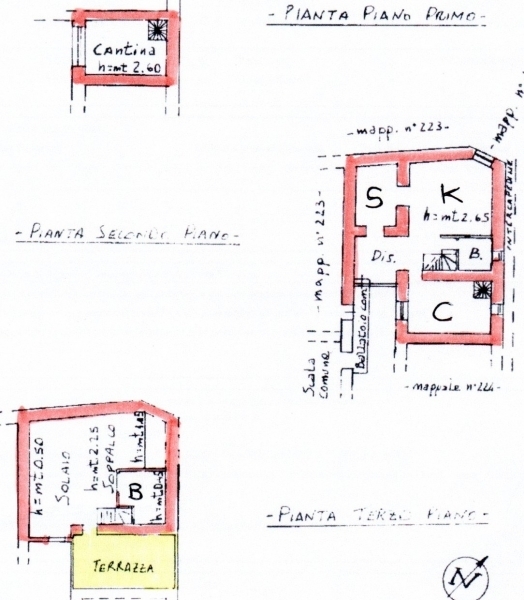 - PIANTA PIANO PRIMO -
Cantina
h=mt 2.60
- mapp. n° 223 -
- mapp. n°
INTERCAPEDINE
- mapp. n° 223 -
S
K
h=mt 2.65
Dis.
B.
C
Ballatoio com
Scala
comune
- mappale n° 224 -
- PIANTA SECONDO PIANO -
h=mt 0.50
SOLAIO
h=mt 2.25
SOPPALCO
B
TERRAZZA
- PIANTA TERZO PIANO -
N